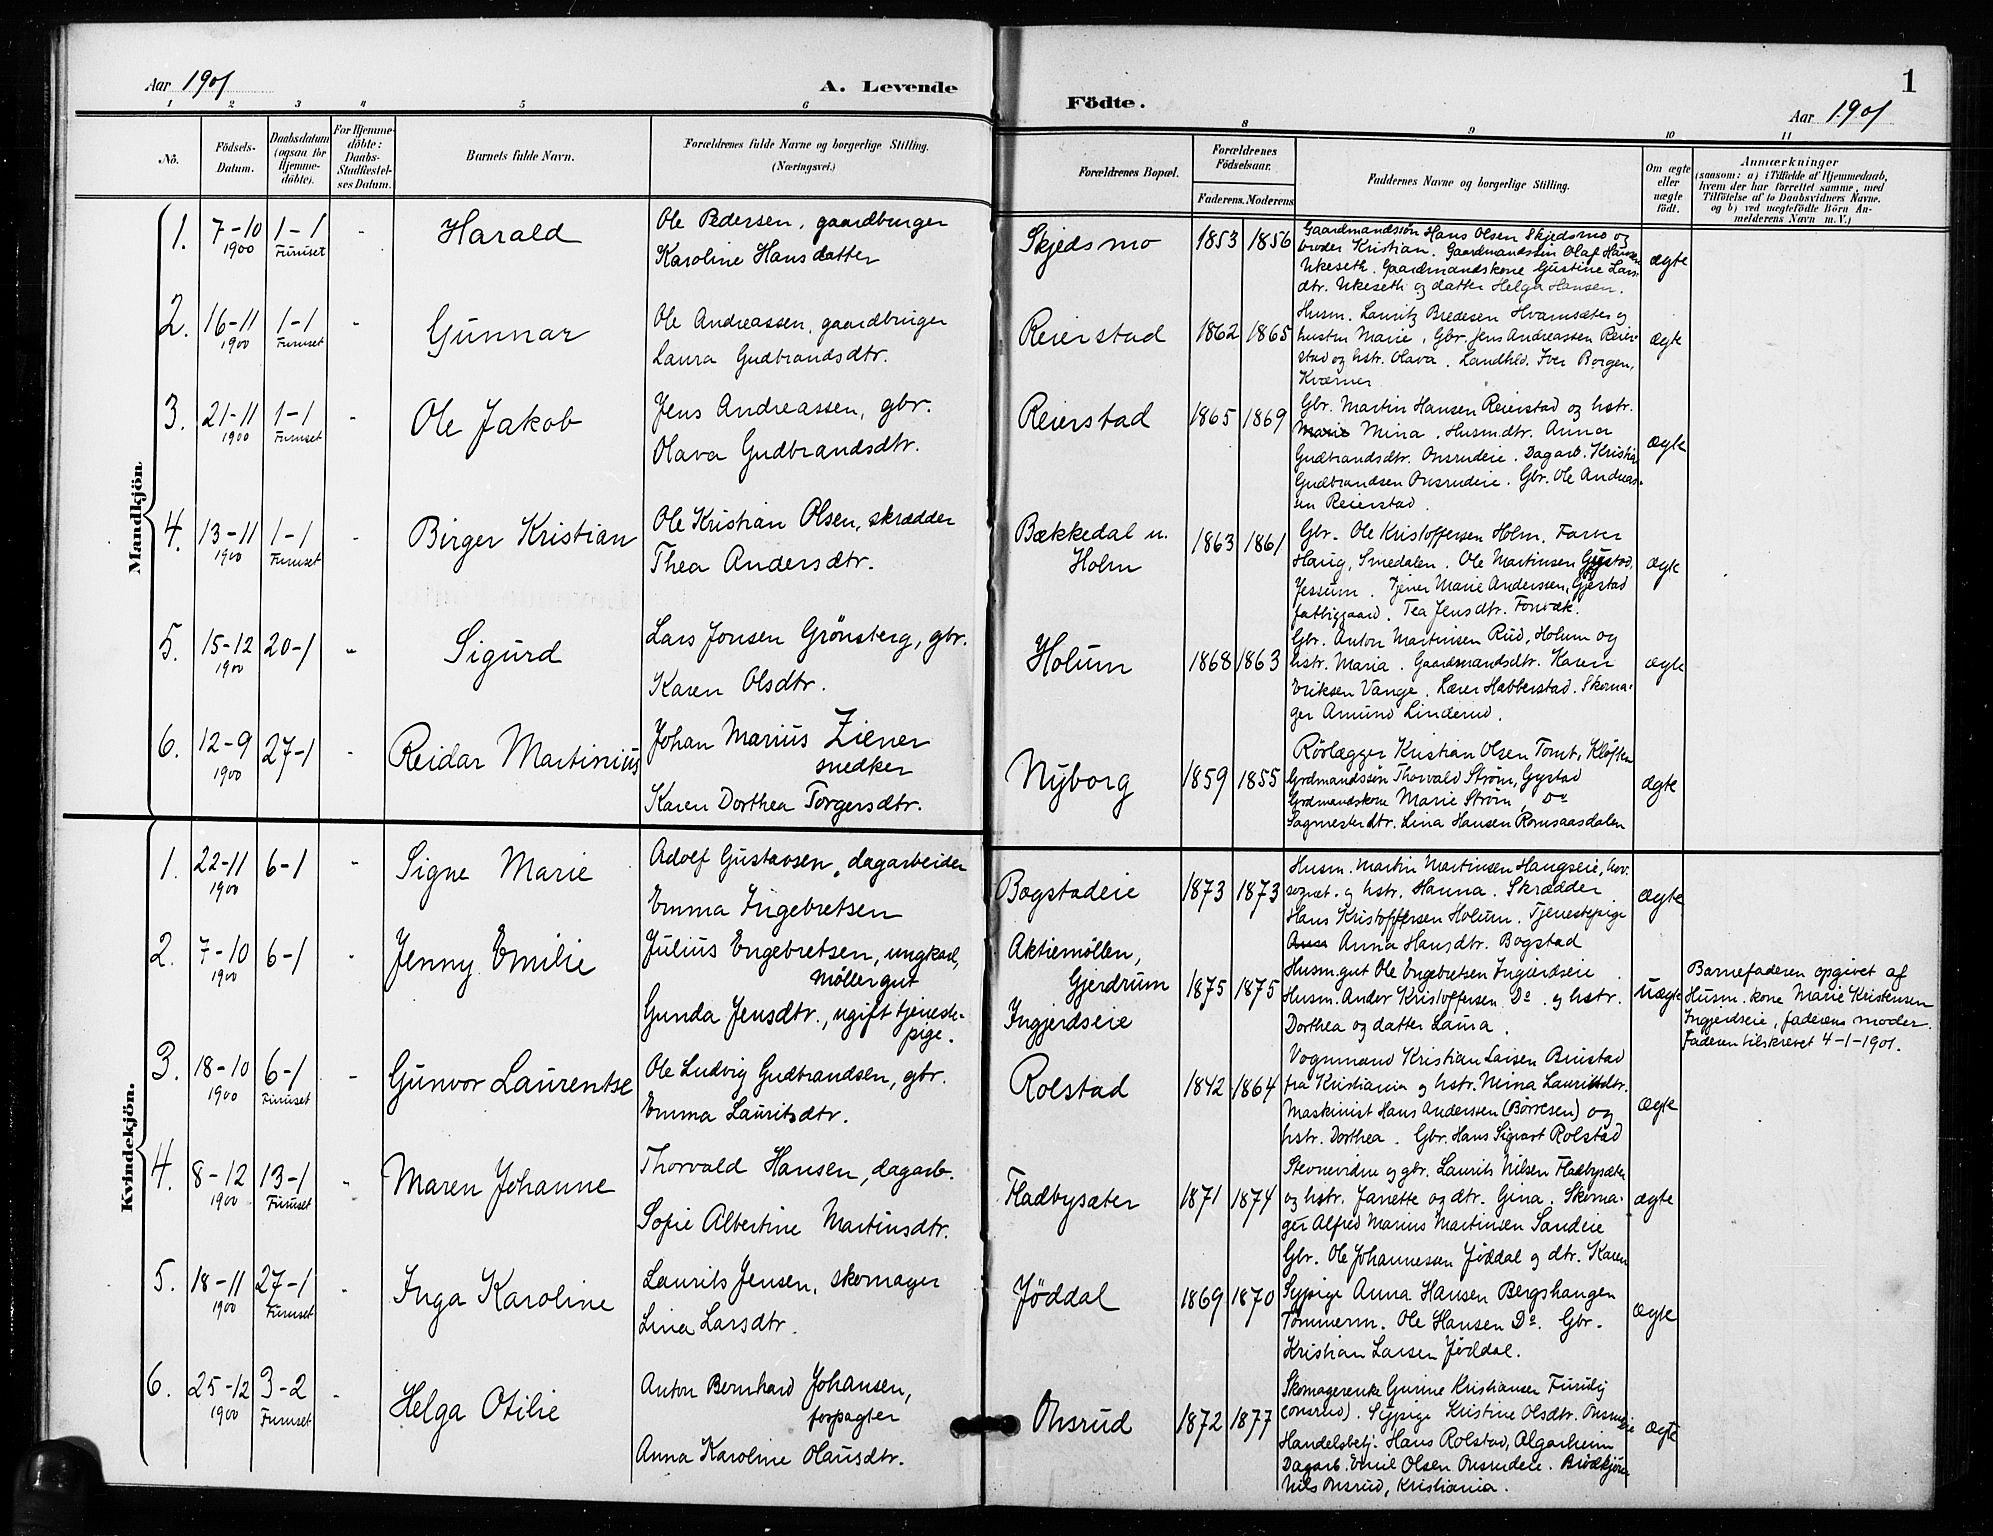 Aar 1901
A. Levende
1 2 3 4 5 6
Nô.
Födsels-Datum.
Daabsdatum (ogsaa for Hjemme-döbte).
For Hjemme-döbte: Daabs-Stadfæstel-ses Datum.
Barnets fulde Navn.
Forældrenes fulde Navne og borgerlige Stilling.
(Næringsvei.)
Mandkjön.
1. 7-10 1900 1-1 Furuset " Harald
Ole Pedersen, gaardbruger
Karoline Hansdatter
2. 16-11 1900 1-1 Furuset " Gunnar
Ole Andreassen, gaardbruger
Laura Gudbrandsdtr.
3. 21-11 1900 1-1 Furuset " Ole Jakob
Jens Andreassen, gbr.
Olava Gudbrandsdtr.
4. 13-11 1900 1-1 Furuset " Birger Kristian
Ole Kristian Olsen, skrædder
Thea Andersdtr.
5. 15-12 1900 20-1 " Sigurd
Lars Jonsen Grönsberg, gbr.
Karen Olsdtr.
6. 12-9 1900 27-1 " Reidar Martinius
Johan Marius Ziener
snedker
Karen Dorthea Torgersdtr.
Kvindekjön.
1. 22-11 1900 6-1 " Signe Marie
Adolf Gustavsen, dagarbeider
Emma Ingebretsen
2. 7-10 1900 6-1 " Jenny Emilie
Julius Engebretsen, ungkarl,
Möllergut
Gunda Jensdtr., ugift tjeneste-
pige.
3. 18-10 1900 6-1 Furuset " Gunvor Laurentse
Ole Ludvig Gudbrandsen, gbr.
Emma Lauritsdtr.
4. 8-12 1900 13-1 Furuset " Maren Johanne
Thorvald Hansen, dagarb.
Sofie Albertine Martinsdtr.
5. 18-11 1900 27-1 Furuset " Inga Karoline
Laurits Jensen, skomager
Lina Larsdtr.
6. 25-12 1900 3-2 Furuset " Helga Otilie
Anton Bernhard Johansen,
forpagter
Anna Karoline Olausdtr.
1
Födte.
Aar 1901
8 9 10 11
Forældrenes Bopæl.
Forældrenes Födselsaar.
Faderens. Moderens
Faddernes Navne og borgerlige Stilling.
Om ægte eller uægte födt.
Anmærkninger
(saasom: a) i Tilfælde af Hjemmedaab,
hvem der har forrettet samme, med
Tilföielse af to Daabsvidners Navne.
og b) ved uægtefödte Börn An-
melderens Navn m. V.)
Skjedsmo 1853 1856
Gaardmandssön Hans Olsen Skjedsmo og
broder Kristian. Gaardmandssön Olaf Hansen
Ukeseth. Gaardmandskone Gustine Lars-
dtr. Ukeseth og datter Helga Hansen.
ægte
Reierstad 1862 1865
Husm. Lauritz Bredesen Hvamsæter og
hustru Marie. Gbr. Jens Andreassen Reier-
stad og hstr. Olava. Landhld. Iver Borgen,
Kværner
ægte
Reierstad 1865 1869
Gbr. Martin Hansen Reierstad og hstr.
Marie Mina. Husmdtr. Anna
Gudbrandsdtr. Onsrudeie. Dagarb. Kristian
Gudbrandsen Onsrudeie. Gbr. Ole Andreas-
sen Reierstad.
ægte
Bækkedal u.
Holm 1863 1861
Gbr. Ole Kristoffersen Holm. Farver
Haug, Smedalen. Ole Martinsen Gjestad,
Jessum. Tjener Marie Anderssen, Gjestad
fattiggaard. Tea Jensdtr. Fonvæk.
ægte
Holum 1868 1863
Gbr. Anton Martinsen Rud, Holum og
hstr. Maria. Gaardmandsdtr. Karen
Eriksen Vange. Lærer Habberstad. Skoma-
ger Amund Linderud.
ægte
Nyborg 1859 1855
Rörlægger Kristian Olsen Tomt, Klöften
Grdmandssön Thorvald Ström, Gystad
Grdmandskone Marie Ström, Do
Sagmesterdtr. Lina Hansen Romsaasdalen
ægte
Bogstadeie 1873 1873
Husm. Martin Martinsen Haugseie, hov-
sognet. og hstr. Hanna. Skrædder
Hans Kristoffersen Holum. Tjenestepige
Anna Hansdtr. Bogstad
ægte
Aktiemöllen,
Gjerdrum
Ingjerdseie 1875 1875
Husm.gut Ole Engebretsen Ingjerdseie
Husm. Ander Kristoffersen Do. og hstr.
Dorthea og datter Laura.
uægte
Barnefaderen opgivet af
Husm. kone Marie Kristensen
Ingjerdseie, faderens moder.
Faderen tilskrevet 4-1-1901.
Rolstad 1842 1864
Vognmand Kristian Larsen Brustad
fra Kristiania og hstr. Nina Lauritsdtr.
Maskinist Hans Anderssen (Börresen) og
hstr. Dorthea. Gbr. Hans Sigvart Rolstad
ægte
Fladbysæter 1871 1874
Stevnevidne og gbr. Laurits Nilsen Fladbysæter
og hstr. Janette og dtr. Gina. Skoma-
ger Alfred Marius Martinsen Sandeie
ægte
Jöddal 1869 1870
Gbr. Ole Johannesen Jöddal og dtr. Karen
Sypige Anna Hansen Bergshangen
Tömmerm. Ole Hansen Do. Gbr.
Kristian Larsen Jöddal.
ægte
Onsrud 1872 1877
Skomagerenke Gurine Kristiansen Furulij
(Onsrud). Sypige Kristine Olsdtr. Onsrudeie
Handelsbetj. Hans Rolstad, Algarheim
Dagarb. Emil Olsen Onsrudeie. Brödkjörer
Nils Onsrud, Kristiania.
ægte